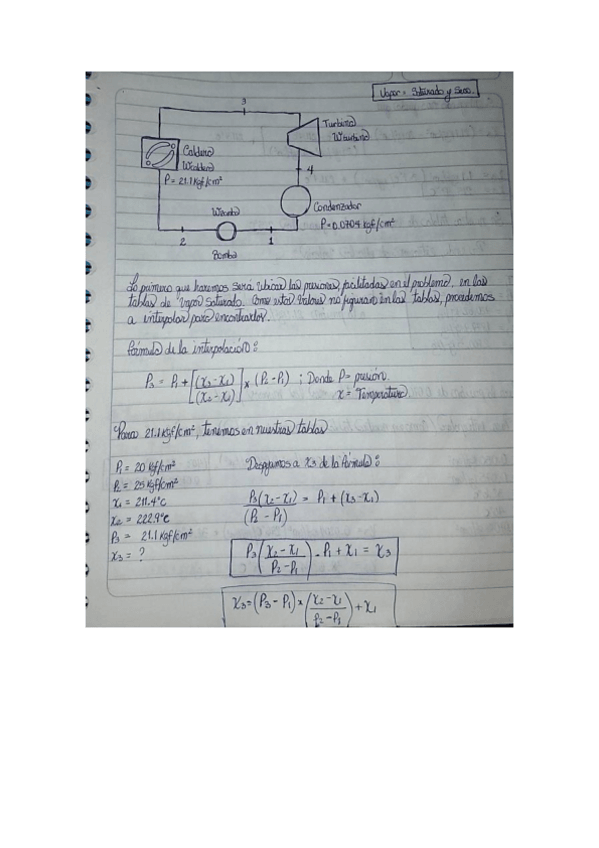 Vapor = Saturado y Seco.
3
Turbina
Wturbina
Caldera
Wcaldera
P = 21.1 Kgf/cm²
4
Condenzador
P=0.0704 kgf/cm²
Wbomba
2
1
Bomba
Lo primero que haremos será ubicar las presiones, facilitadas en el problema, en las
tablas de vapor saturado. Como estos valores no figuran en las tablas, procedemos
a interpolar para encontrarlos.
Fórmula de la interpolación:
P3 = P1 + [(x3-x1)/(x2-x1)] x (P2-P1) ; Donde P= presión.
x = Temperatura.
Para 21.1 kgf/cm², tenemos en nuestras tablas
P1 = 20 Kgf/cm²
Despejamos a x3 de la fórmula:
P2 = 25 Kgf/cm²
x1 = 211.4°c
P3(x2-x1)/(P2-P1) = P1 + (x3-x1)
x2 = 222.9°c
P3 = 21.1 Kgf/cm²
x3 = ?
P3(x2-x1/P2-P1) - P1 + x1 = x3
x3=(P3-P1)x(x2-x1/P2-P1)+x1